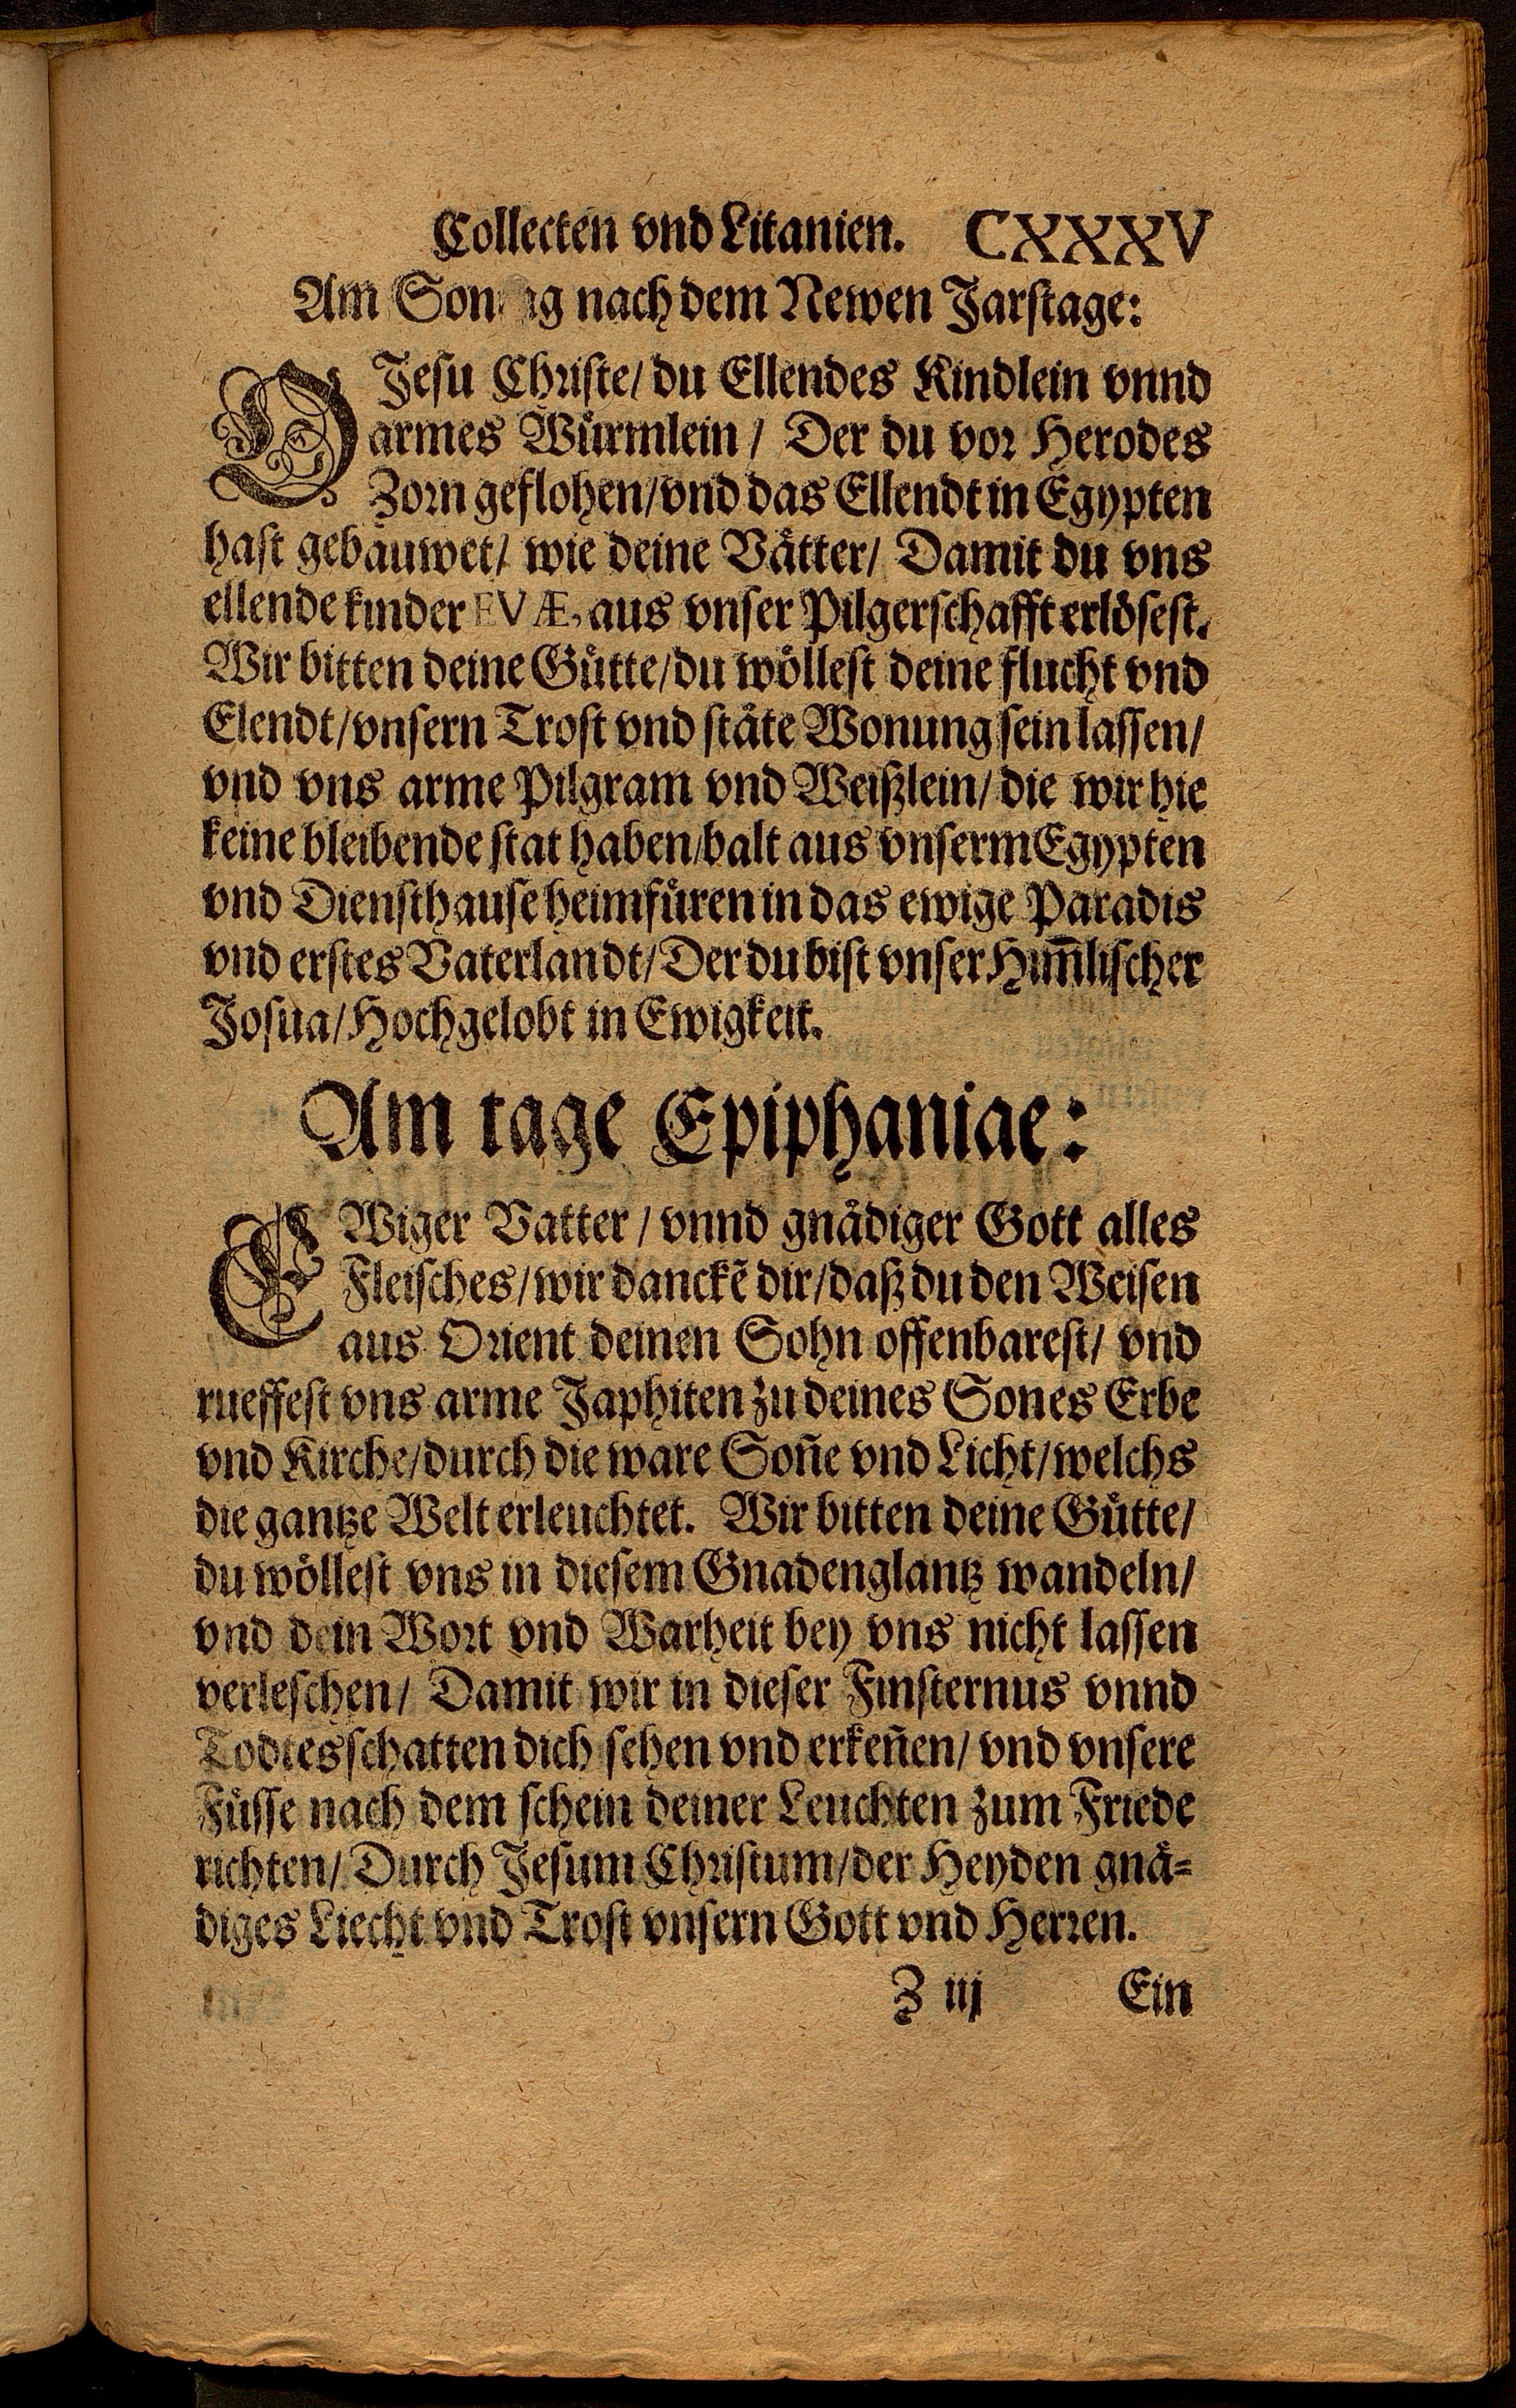 Collecten vnd Litanien. CXXXV
Am nach dem Newen Jarstage:
O Jesu Christe/ du Ellendes Kindlein vnnd
armes Wuͤrmlein/ Der du vor Herodes
Zorn geflohen/ vnd das Ellendt in Egypten
hast gebauwet/ wie deine Vaͤtter/ Damit du vns
ellende kinder EVÆ, aus vnser Pilgerschafft erloͤsest.
Wir bitten deine Guͤtte/ du woͤllest deine flucht vnd
Elendt/ vnsern Trost vnd staͤte Wonung sein lassen/
vnd vns arme Pilgram vnd Weißlein/ die wir hie
keine bleibende stat haben/ balt aus vnserm Egypten
vnd Diensthause heimfuͤren in das ewige Paradis
vnd erstes Vaterlandt/ Der du bist vnser Him̃lischer
Josua/ Hochgelobt in Ewigkeit.
Am tage Epiphaniae:
EWiger Vatter/ vnnd gnaͤdiger Gott alles
Fleisches/ wir danckẽ dir/ daß du den Weisen
aus Orient deinen Sohn offenbarest/ vnd
rueffest vns arme Japhiten zu deines Sones Erbe
vnd Kirche/ durch die ware Soñe vnd Licht/ welchs
die gantze Welt erleuchtet. Wir bitten deine Guͤtte/
du woͤllest vns in diesem Gnadenglantz wandeln/
vnd dein Wort vnd Warheit bey vns nicht lassen
verleschen/ Damit wir in dieser Finsternus vnnd
Todtesschatten dich sehen vnd erkeñen/ vnd vnsere
Fuͤsse nach dem schein deiner Leuchten zum Friede
richten/ Durch Jesum Christum/ der Heyden gnaͤ⸗
diges Liecht vnd Trost vnsern Gott vnd Herren.
Z iij Ein